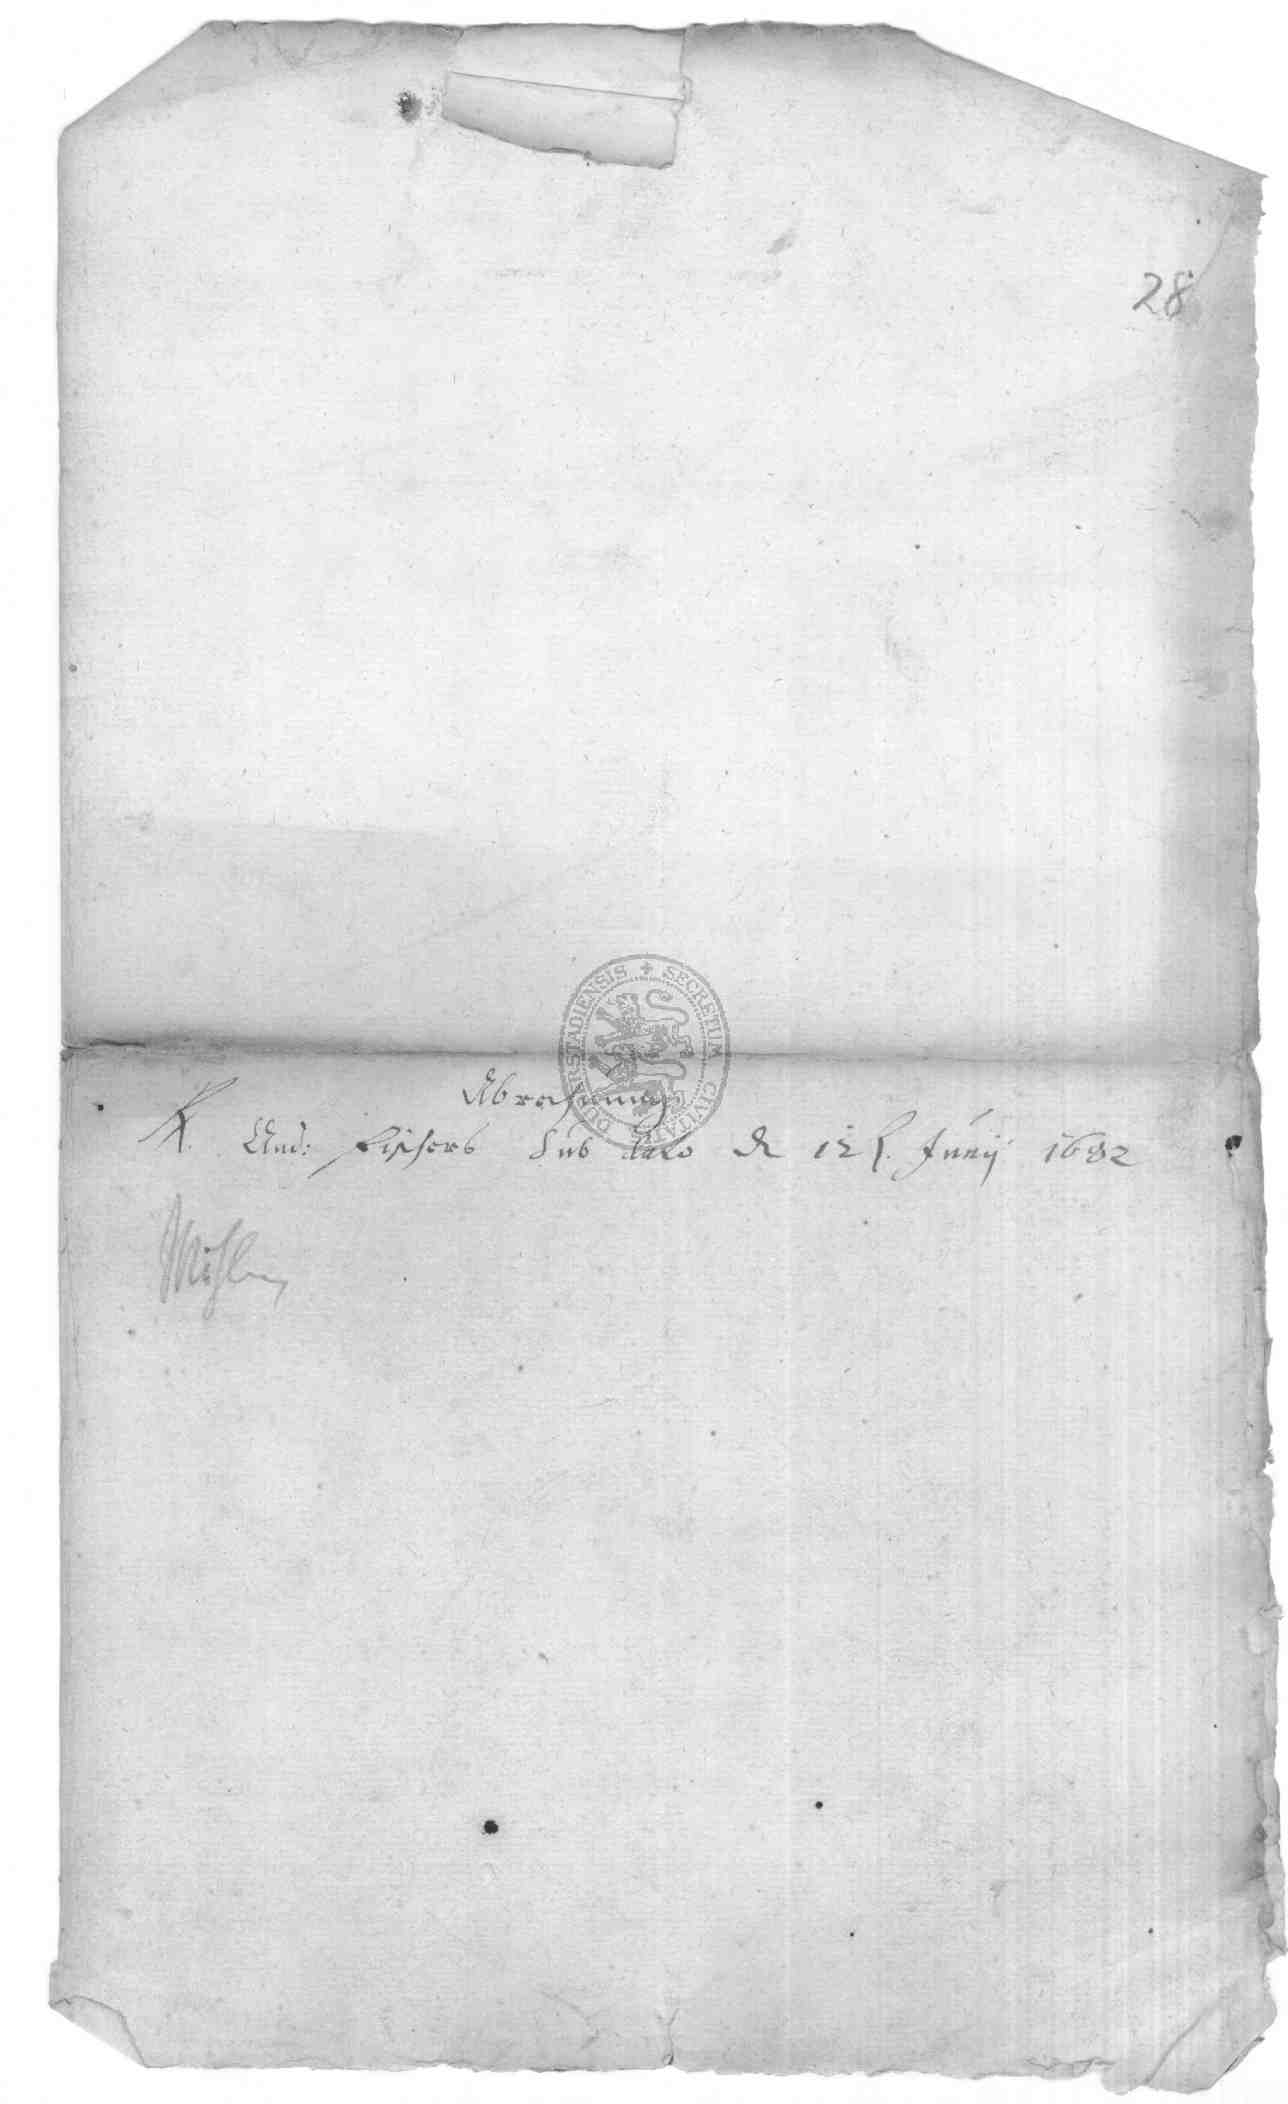 28
SECRETUM CIVITATIS DUDERSTADIENSIS
Abrechnung
K. And: Fischers Sub dato d 12 t. Junij 1682